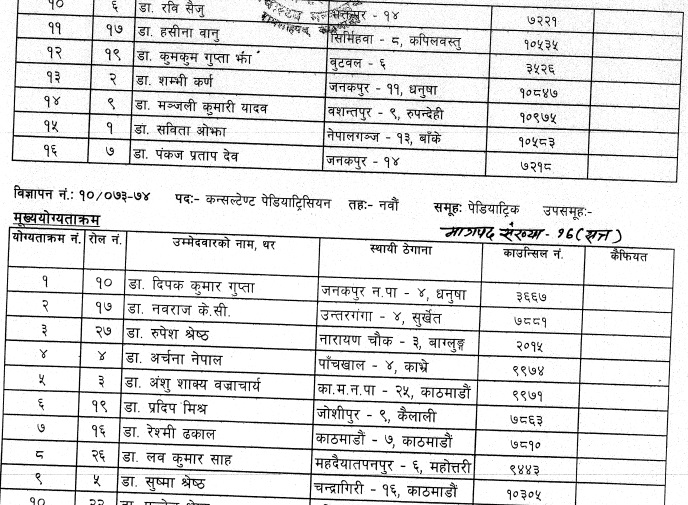 १० ६ डा. रवि सैजु - १४ ७२२१
११ १७ डा. हसीना वानु सिर्मिहवा - ८, कपिलवस्तु १०५३५
१२ १९ डा. कुमकुम गुप्ता झाँ वुटवल - ६ ३५२६
१३ २ डा. शम्भी कर्ण जनकपुर - ११, धनुषा १०८४७
१४ ९ डा. मञ्जली कुमारी यादव वशन्तपुर - ९, रुपन्देही १०९७५
१५ १ डा. सविता ओझा नेपालगञ्ज - १३, बाँके १०५८३
१६ ७ डा. पंकज प्रताप देव जनकपुर - १४ ७२१८
विज्ञापन नं.: १०/०७३-७४ पदः- कन्सल्टेण्ट पेडियाट्रिसियन तहः- नवौं समूहः पेडियाट्रिक उपसमूहः-
मूख्ययोग्यताक्रम
योग्यताक्रम नं. रोल नं. उम्मेदवारको नाम, थर स्थायी ठेगाना काउन्सिल नं. कैफियत
१ १० डा. दिपक कुमार गुप्ता जनकपुर न.पा - ४, धनुषा ३६६७
२ १७ डा. नवराज के.सी. उत्तरगंगा - ४, सुर्खेत ७८८१
३ २७ डा. रुपेश श्रेष्ठ नारायण चौक - ३, बाग्लुङ्ग २०१५
४ ४ डा. अर्चना नेपाल पाँचखाल - ४, काभ्रे ९९७४
५ ३ डा. अंशु शाक्य वज्राचार्य का.म.न.पा - २५, काठमाडौं ९९७१
६ १९ डा. प्रदिप मिश्र जोशीपुर - ९, कैलाली ७८६३
७ १६ डा. रेश्मी ढकाल काठमाडौं - ७, काठमाडौं ७८१०
८ २६ डा. लव कुमार साह महदैयातपनपुर - ६, महोत्तरी ९४४३
९ ५ डा. सुष्मा श्रेष्ठ चन्द्रागिरी - १६, काठमाडौं १०३०५
१० २२ डा.